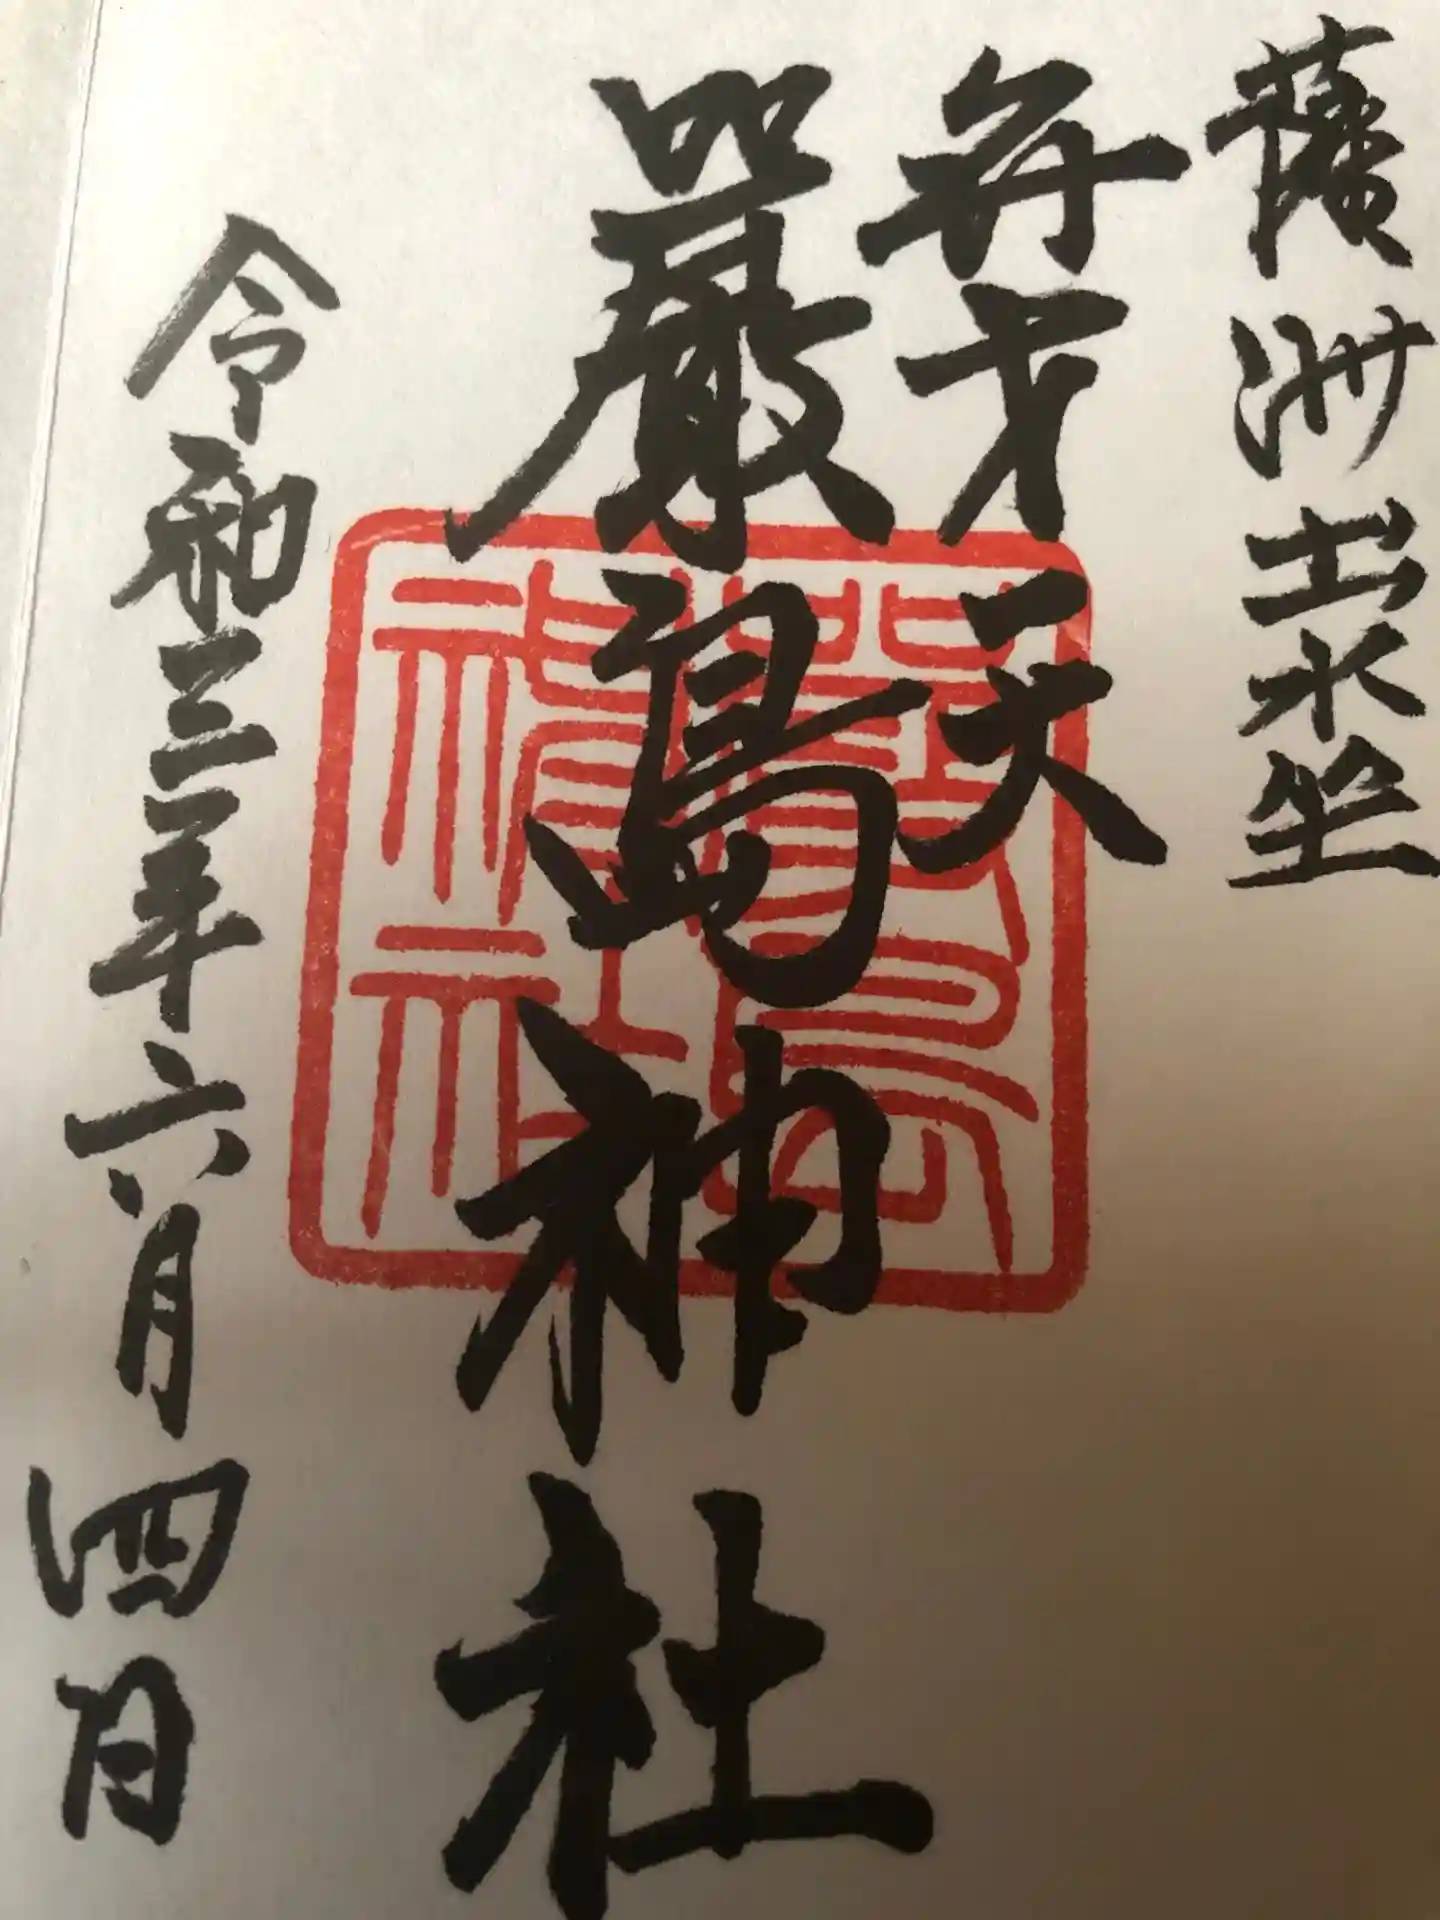 薩洲出水坐
弁才天
嚴島神社
嚴島
神社
令和三年六月四日